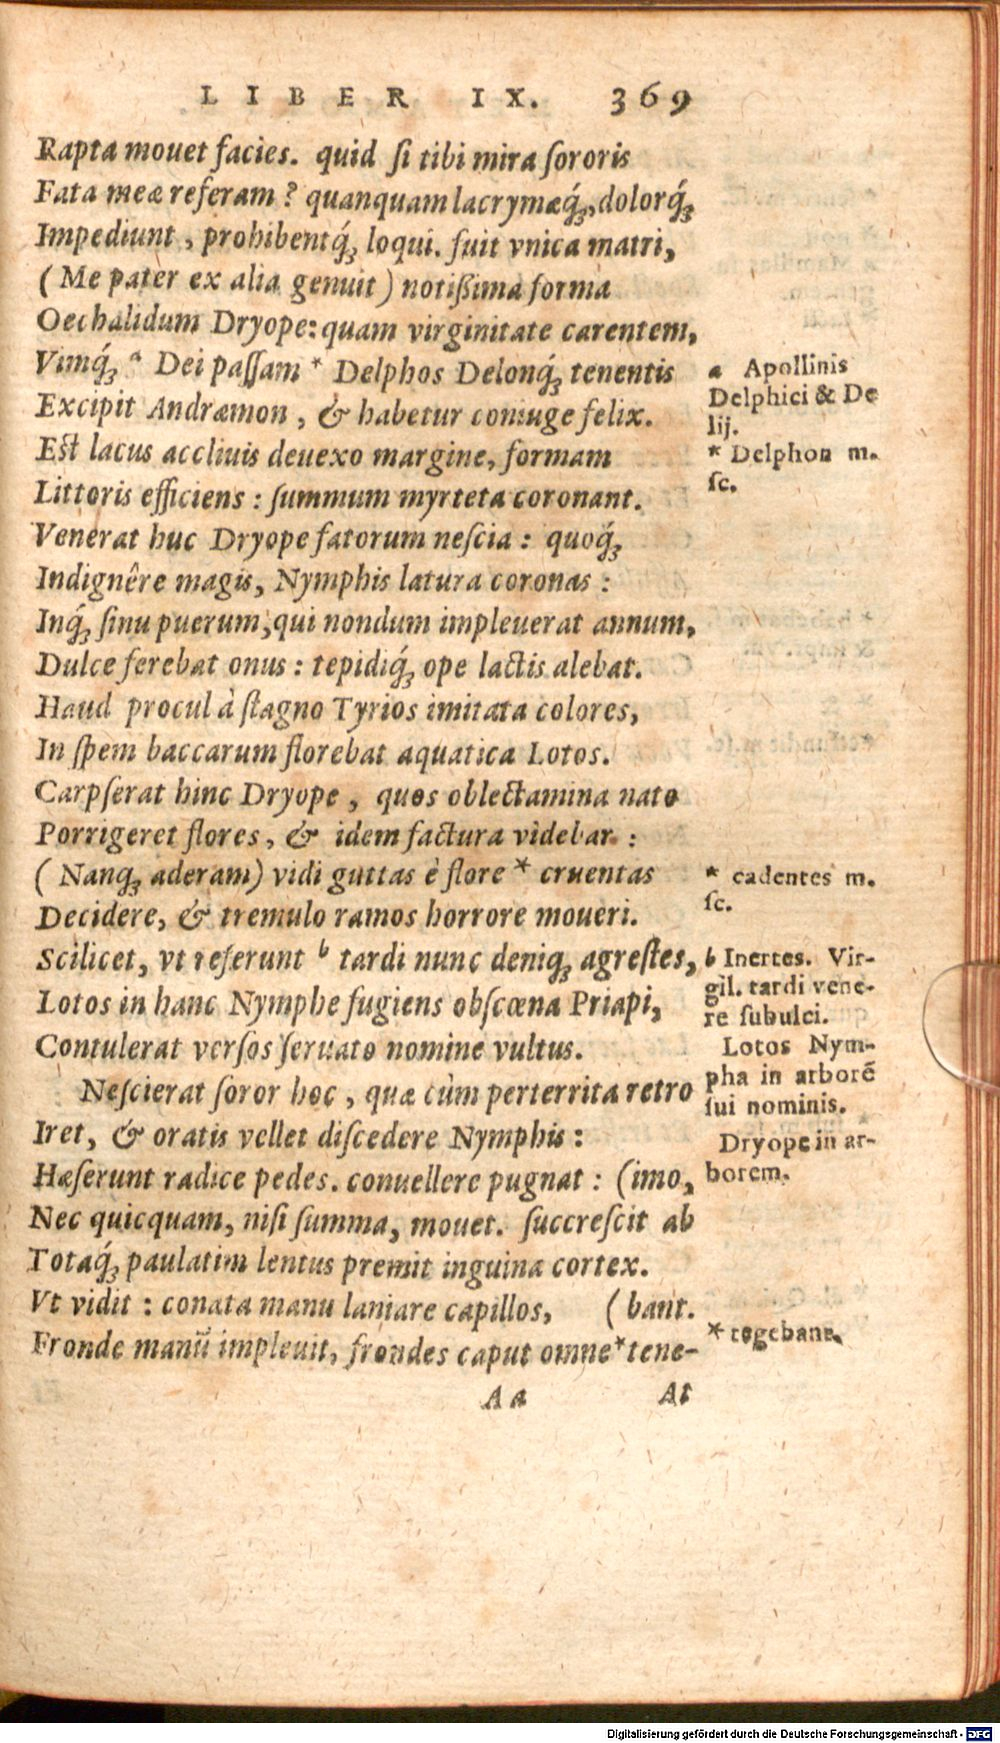 LIBER IX. 369
Rapta mouet facies. quid ſi tibi mira ſororis
Fata meæ referam? quanquam lacrymæq́;, dolorq́;
Impediunt, prohibentq́; loqui. fuit vnica matri,
(Me pater ex alia genuit) notißima forma
Oechalidum Dryope: quam virginitate carentem,
Vimq́; ᵃ Dei paſſam * Delphos Delonq́; tenentis
Excipit Andræmon, & habetur coniuge felix.
Eſt lacus accliuis deuexo margine, formam
Littoris efficiens: ſummum myrteta coronant.
Venerat huc Dryope fatorum neſcia: quoq́;
Indignêre magis, Nymphis latura coronas:
Inq́; ſinu puerum, qui nondum impleuerat annum,
Dulce ferebat onus: tepidiq́; ope lactis alebat.
Haud procul à ſtagno Tyrios imitata colores,
In ſpem baccarum florebat aquatica Lotos.
Carpſerat hinc Dryope, quos oblectamina nato
Porrigeret flores, & idem factura videbar:
(Nanq; aderam) vidi guttas è flore * cruentas
Decidere, & tremulo ramos horrore moueri.
Scilicet, vt referunt ᵇ tardi nunc deniq; agreſtes,
Lotos in hanc Nymphe fugiens obſcœna Priapi,
Contulerat verſos ſeruato nomine vultus.
Neſcierat ſoror hoc, quæ cùm perterrita retro
Iret, & oratis vellet diſcedere Nymphis:
Hæſerunt radice pedes. conuellere pugnat: (imo,
Nec quicquam, niſi ſumma, mouet. ſuccreſcit ab
Totaq́; paulatim lentus premit inguina cortex.
Vt vidit: conata manu laniare capillos, (bant.
Fronde manū impleuit, frondes caput omne * tene-
Aa At
a Apollinis
Delphici & De
lij.
* Delphon m.
ſc.
* cadentes m.
ſc.
b Inertes. Vir-
gil. tardi vene-
re ſubulci.
Lotos Nym-
pha in arborē
ſui nominis.
Dryope in ar-
borem.
* tegebant,
Digitalisierung gefördert durch die Deutsche Forschungsgemeinschaft - DFG